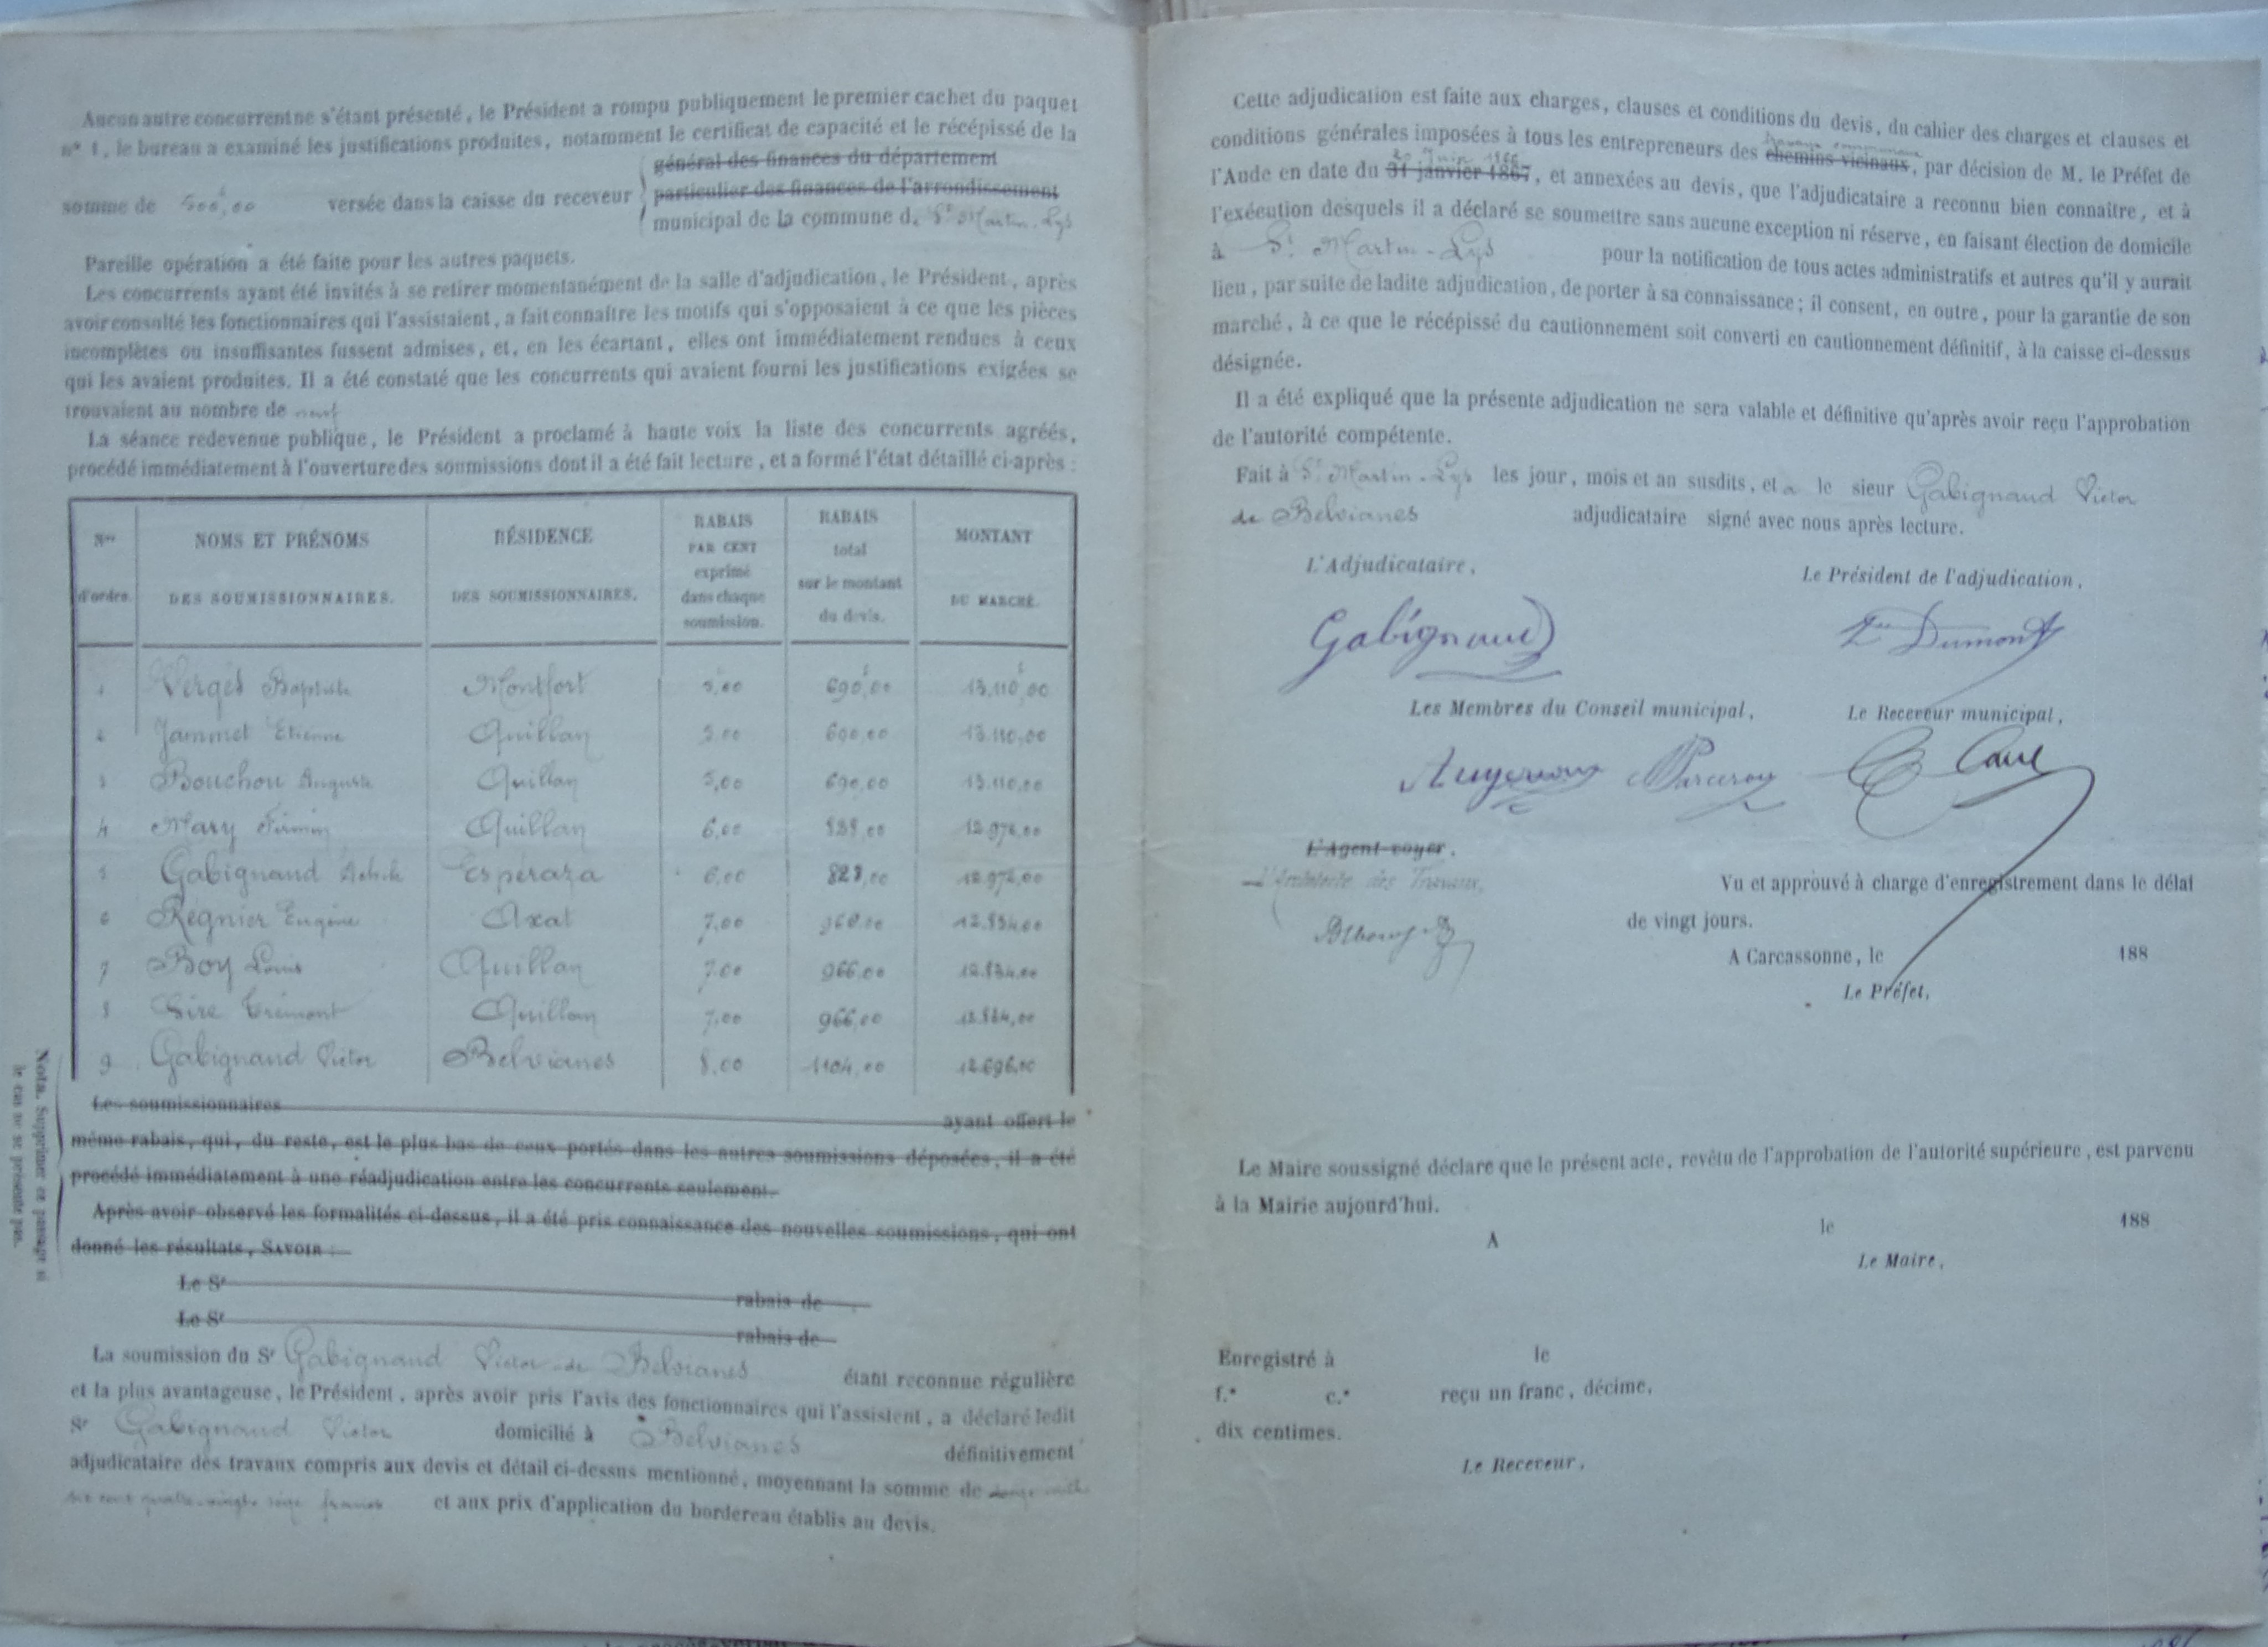 Aucun autre concurrent ne s'étant présenté, le Président a rompu publiquement le premier cachet du paquet
n° 1, le bureau a examiné les justifications produites, notamment le certificat de capacité et le récépissé de la
général des finances du département
somme de 500,00 versée dans la caisse du receveur particulier des finances de l'arrondissement
municipal de la commune d. St Martin-Lys
Pareille opération a été faite pour les autres paquets.
Les concurrents ayant été invités à se retirer momentanément de la salle d'adjudication, le Président, après
avoir consulté les fonctionnaires qui l'assistaient, a fait connaître les motifs qui s'opposaient à ce que les pièces
incomplètes ou insuffisantes fussent admises, et, en les écartant, elles ont immédiatement rendues à ceux
qui les avaient produites. Il a été constaté que les concurrents qui avaient fourni les justifications exigées se
trouvaient au nombre de neuf
La séance redevenue publique, le Président a proclamé à haute voix la liste des concurrents agréés,
procédé immédiatement à l'ouverture des soumissions dont il a été fait lecture, et a formé l'état détaillé ci-après :
Nos d'ordre. NOMS ET PRÉNOMS DES SOUMISSIONNAIRES. RÉSIDENCE DES SOUMISSIONNAIRES. RABAIS PAR CENT exprimé dans chaque soumission. RABAIS total sur le montant du devis. MONTANT DU MARCHÉ.
1 Vergès Baptiste Montfort 5,00 690,00 13.110,00
2 Jammet Etienne Quillan 5,00 690,00 13.110,00
3 Bouchou Auguste Quillan 5,00 690,00 13.110,00
4 Mary Firmin Quillan 6,00 828,00 12.972,00
5 Gabignaud Espéraza 6,00 828,00 12.972,00
6 Régnier Eugène Axat 7,00 966,00 12.834,00
7 Boy Louis Quillan 7,00 966,00 12.834,00
8 Sire Quillan 7,00 966,00 12.834,00
9 Gabignaud Victor Belvianes 8,00 1104,00 12.696,00
Les soumissionnaires ayant offert le
même rabais, qui, du reste, est le plus bas de ceux portés dans les autres soumissions déposées, il a été
procédé immédiatement à une réadjudication entre les concurrents seulement.
Après avoir observé les formalités ci-dessus, il a été pris connaissance des nouvelles soumissions, qui ont
donné les résultats, SAVOIR :
Le Sr rabais de
Le Sr rabais de
Nota. Supprimer ce passage si
le cas ne se présente pas.
La soumission du Sr Gabignaud Victor de Belvianes étant reconnue régulière
et la plus avantageuse, le Président, après avoir pris l'avis des fonctionnaires qui l'assistent, a déclaré ledit
Sr Gabignaud Victor domicilié à Belvianes définitivement
adjudicataire des travaux compris aux devis et détail ci-dessus mentionné, moyennant la somme de douze mille
six cent quatre-vingts seize francs et aux prix d'application du bordereau établis au devis.
Cette adjudication est faite aux charges, clauses et conditions du devis, du cahier des charges et clauses et
conditions générales imposées à tous les entrepreneurs des chemins vicinaux, par décision de M. le Préfet de
l'Aude en date du 31 janvier 1867, et annexées au devis, que l'adjudicataire a reconnu bien connaître, et à
l'exécution desquels il a déclaré se soumettre sans aucune exception ni réserve, en faisant élection de domicile
à St Martin-Lys pour la notification de tous actes administratifs et autres qu'il y aurait
lieu, par suite de ladite adjudication, de porter à sa connaissance ; il consent, en outre, pour la garantie de son
marché, à ce que le récépissé du cautionnement soit converti en cautionnement définitif, à la caisse ci-dessus
désignée.
Il a été expliqué que la présente adjudication ne sera valable et définitive qu'après avoir reçu l'approbation
de l'autorité compétente.
Fait à St Martin-Lys les jour, mois et an susdits, et a le sieur Gabignaud Victor
de Belvianes adjudicataire signé avec nous après lecture.
L'Adjudicataire, Le Président de l'adjudication,
Gabignaud Dumont
Les Membres du Conseil municipal, Le Receveur municipal,
L'Agent-voyer.
L'Architecte des Travaux,
Vu et approuvé à charge d'enregistrement dans le délai
de vingt jours.
A Carcassonne, le 188
Le Préfet,
Le Maire soussigné déclare que le présent acte, revêtu de l'approbation de l'autorité supérieure, est parvenu
à la Mairie aujourd'hui.
A le 188
Le Maire,
Enregistré à le
f.° c.° reçu un franc, décime,
dix centimes.
Le Receveur,